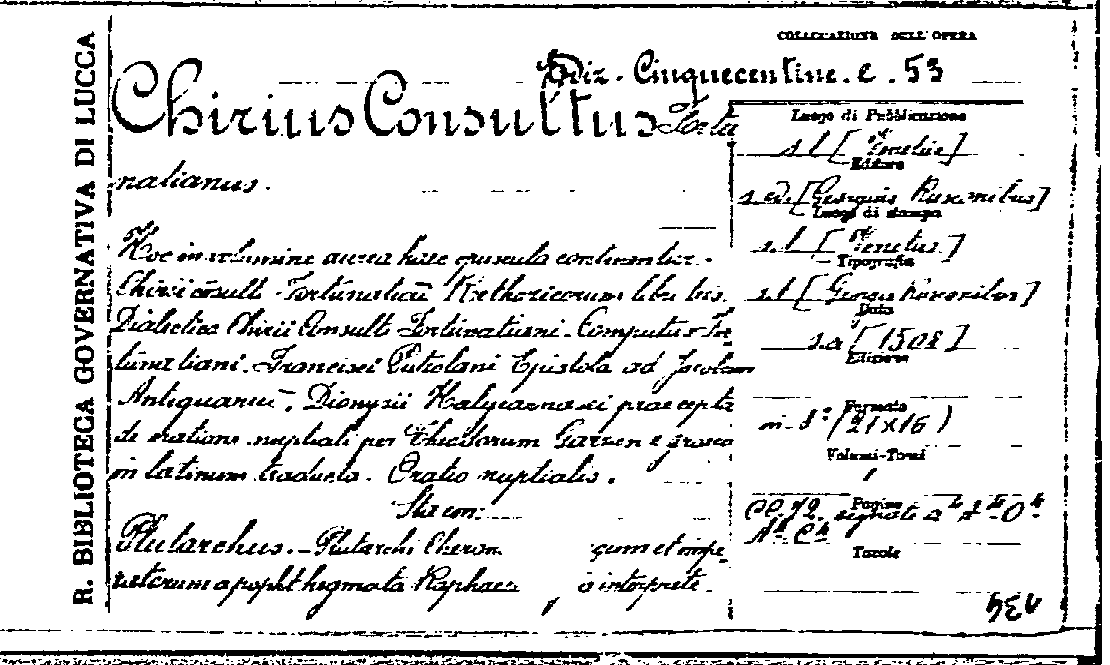 R. BIBLIOTECA GOVERNATIVA DI LUCCA
COLLOCAZIONE DELL'OPERA
Ediz. Cinquecentine. c. 53
Chirius Consultus Fortu
natianus.
Hoc in volumine aurea haec opuscula continentur.
Chirii consulti Fortunatiani Rethoricorum libri tres.
Dialectica Chirii Consulti Fortunatiani. Computus For
tunatiani. Francisci Puteolani Epistola ad Jacobum
Antiquarium. Dionysii Halycarnasei praecepta
de oratione nuptiali per Theodorum Gazam e graeco
in latinum traducta. Oratio nuptialis.
Sta con:
Plutarchus. - Plutarchi Cheron
gum et impe-
ratorum apophthegmata Raphae
o interprete.
Luogo di Pubblicazione
s.l. [Venetiis]
Editore
s. ed. [Georgius Rusconibus]
Luogo di stampa
s.l. [Venetiis]
Tipografia
s.t. [Georgius Rusconibus]
Data
s.a. [1508]
Edizione
Formato
in-8° (21x16)
Volumi-Tomi
1
Pagine
CC.72. segnate
Tavole
134